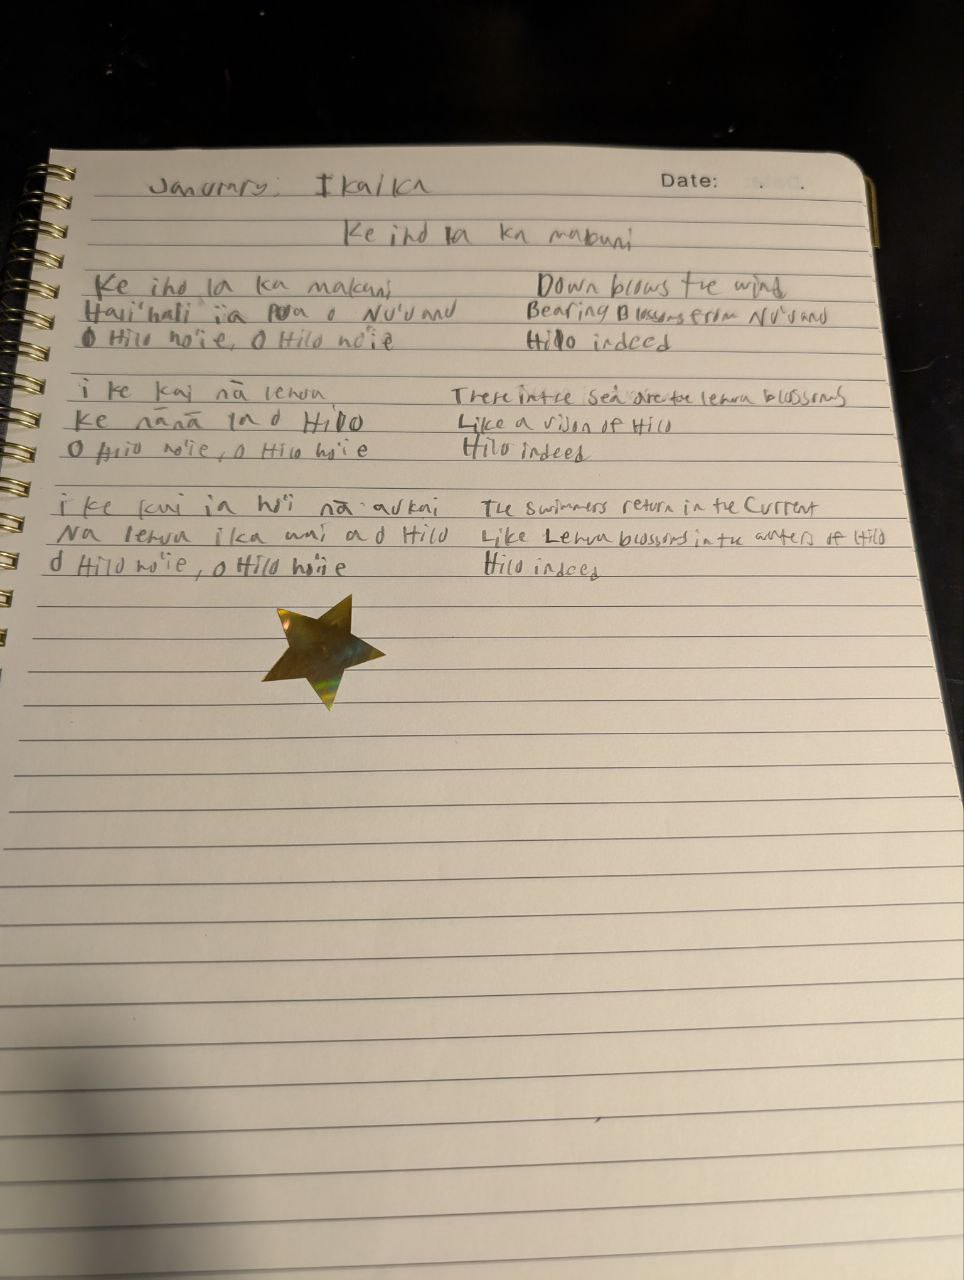 January: Ikaika
Date: . .
Ke iho la ka makani
Ke iho la ka makani Down blows the wind
Hali'hali ia pua o Nu'uano Bearing Blossoms from Nu'uano
O Hilo ho'ie, O Hilo ho'ie Hilo indeed
i ke kai nā lehua There in the sea are the lehua blossoms
Ke nānā la o Hilo Like a vison of Hilo
O Hilo ho'ie, O Hilo ho'ie Hilo indeed
i ke kai ia ho'i nā au kai The swimmers return in the Current
Na lehua i ka wai a o Hilo Like Lehua blossoms in the waters of Hilo
O Hilo ho'ie, O Hilo ho'ie Hilo indeed